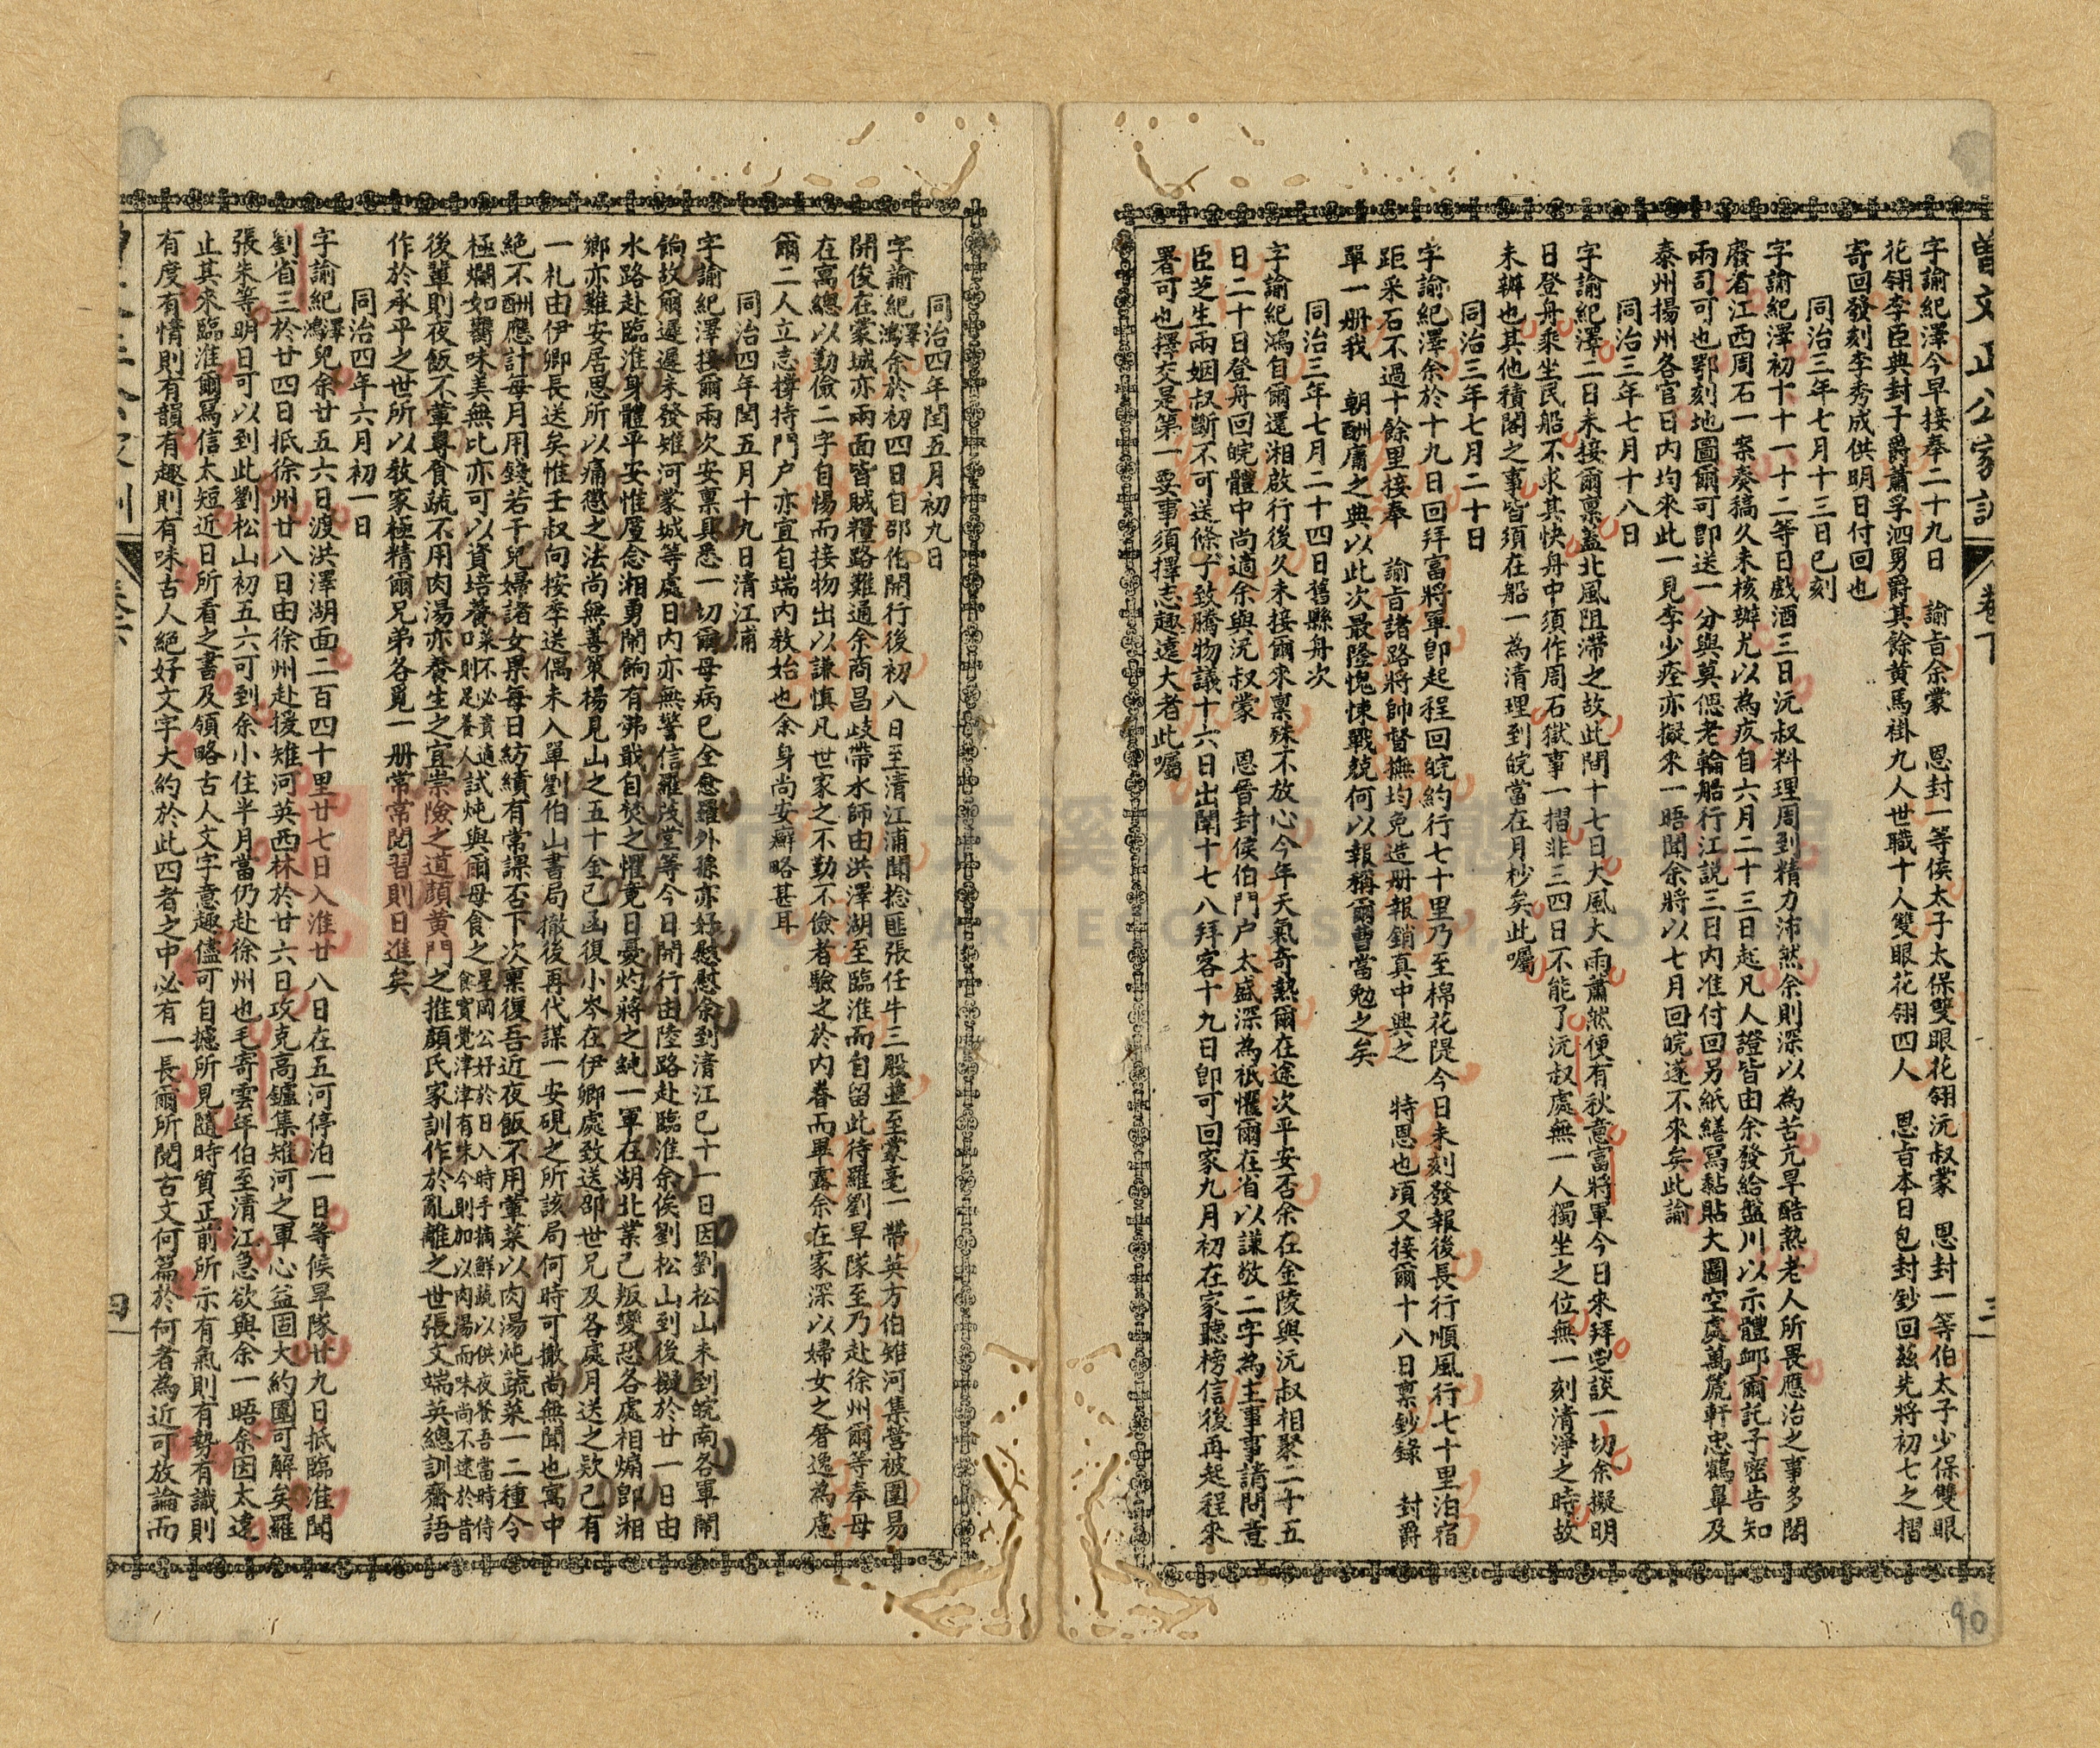 曾文正公家訓
卷下
三
字諭紀澤今早接奉二十九日　諭旨余蒙　恩封一等侯太子太保雙眼花翎沅叔蒙　恩封一等伯太子少保雙眼
花翎李臣典封子爵蕭孚泗男爵其餘黃馬褂九人世職十人雙眼花翎四人　恩旨本日包封鈔回茲先將初七之摺
寄回發刻李秀成供明日付回也
同治三年七月十三日巳刻
字諭紀澤初十十一十二等日戲酒三日沅叔料理周到精力沛然余則深以為苦亢旱酷熱老人所畏應治之事多閣
廢者江西周石一案奏稿久未核辦尤以為疚自六月二十三日起凡人證皆由余發給盤川以示體卹爾託子密告知
兩司可也鄂刻地圖爾可即送一分與莫偲老輪船行江說三日內准付回另紙繕寫黏貼大圖空處萬篪軒忠鶴皋及
泰州揚州各官日內均來此一見李少荃亦擬來一晤聞余將以七月回皖遂不來矣此諭
同治三年七月十八日
字諭紀澤二日未接爾稟蓋北風阻滯之故此間十七日大風大雨蕭然便有秋意富將軍今日來拜鬯談一切余擬明
日登舟乘坐民船不求其快舟中須作周石獄事一摺非三四日不能了沅叔處無一人獨坐之位無一刻清淨之時故
未辦也其他積閣之事皆須在船一為清理到皖當在月杪矣此囑
同治三年七月二十日
字諭紀澤余於十九日回拜富將軍即起程回皖約行七十里乃至棉花隄今日未刻發報後長行順風行七十里泊宿
距采石不過十餘里接奉　諭旨諸路將帥督撫均免造册報銷真中興之　特恩也頃又接爾十八日稟鈔錄　封爵
單一册我　朝酬庸之典以此次最隆愧悚戰兢何以報稱爾曹當勉之矣
同治三年七月二十四日舊縣舟次
字諭紀鴻自爾還湘啟行後久未接爾來稟殊不放心今年天氣奇熱爾在途次平安否余在金陵與沅叔相聚二十五
日二十日登舟回皖體中尚適余與沅叔蒙　恩晉封侯伯門户太盛深為祇懼爾在省以謙敬二字為主事事請問意
臣芝生兩姻叔斷不可送條子致騰物議十六日出闈十七八拜客十九日即可回家九月初在家聽榜信後再起程來
署可也擇交是第一要事須擇志趣遠大者此囑
同治四年閏五月初九日
字諭紀澤鴻余於初四日自邵伯開行後初八日至清江浦聞捻匪張任牛三股並至蒙亳一帶英方伯雉河集營被圍易
開俊在蒙城亦兩面皆賊糧路難通余商昌歧帶水師由洪澤湖至臨淮而自留此待羅劉旱隊至乃赴徐州爾等奉母
在寓總以勤儉二字自惕而接物出以謙慎凡世家之不勤不儉者驗之於內眷而畢露余在家深以婦女之奢逸為慮
爾二人立志撐持門户亦宜自端內教始也余身尚安癬略甚耳
同治四年閏五月十九日清江浦
字諭紀澤接爾兩次安稟具悉一切爾母病已全愈羅外孫亦好慰慰余到清江已十一日因劉松山未到皖南各軍鬧
餉故爾遲遲未發雉河蒙城等處日內亦無警信羅茂堂等今日開行由陸路赴臨淮余俟劉松山到後擬於廿一日由
水路赴臨淮身體平安惟廑念湘勇鬧餉有弗戢自焚之懼竟日憂灼蔣之純一軍在湖北業已叛變恐各處相煽即湘
鄉亦難安居思所以痛懲之法尚無善策楊見山之五十金已函復小岑在伊卿處致送邵世兄及各處月送之款已有
一札由伊卿長送矣惟壬叔向按季送偶未入單劉伯山書局撤後再代謀一安硯之所該局何時可撤尚無聞也寓中
絕不酬應計每月用錢若干兒婦諸女果每日紡績有常課否下次稟復吾近夜飯不用葷菜以肉湯炖蔬菜一二種令
極爛如臡味美無比亦可以資培養菜不必貴適口則足養人試炖與爾母食之星岡公好於日入時手摘鮮蔬以供夜餐吾當時侍食實覺津津有味今則加以肉湯而味尚不逮於昔時
後輩則夜飯不葷專食蔬不用肉湯亦養生之宜崇儉之道顏黃門之推顏氏家訓作於亂離之世張文端英總訓齋語
作於承平之世所以教家極精爾兄弟各覓一册常常閱習則日進矣
同治四年六月初一日
字諭紀澤鴻兒余廿五六日渡洪澤湖面二百四十里廿七日入淮廿八日在五河停泊一日等候旱隊廿九日抵臨淮聞
劉省三於廿四日抵徐州廿八日由徐州赴援雉河英西林於廿六日攻克高鑪集雉河之軍心益固大約圍可解矣羅
張朱等明日可以到此劉松山初五六可到余小住半月當仍赴徐州也毛寄雲年伯至清江急欲與余一晤余因太遠
止其來臨淮爾寫信太短近日所看之書及領略古人文字意趣儘可自攄所見隨時質正前所示有氣則有勢有識則
有度有情則有韻有趣則有味古人絕好文字大約於此四者之中必有一長爾所閱古文何篇於何者為近可放論而
四
90